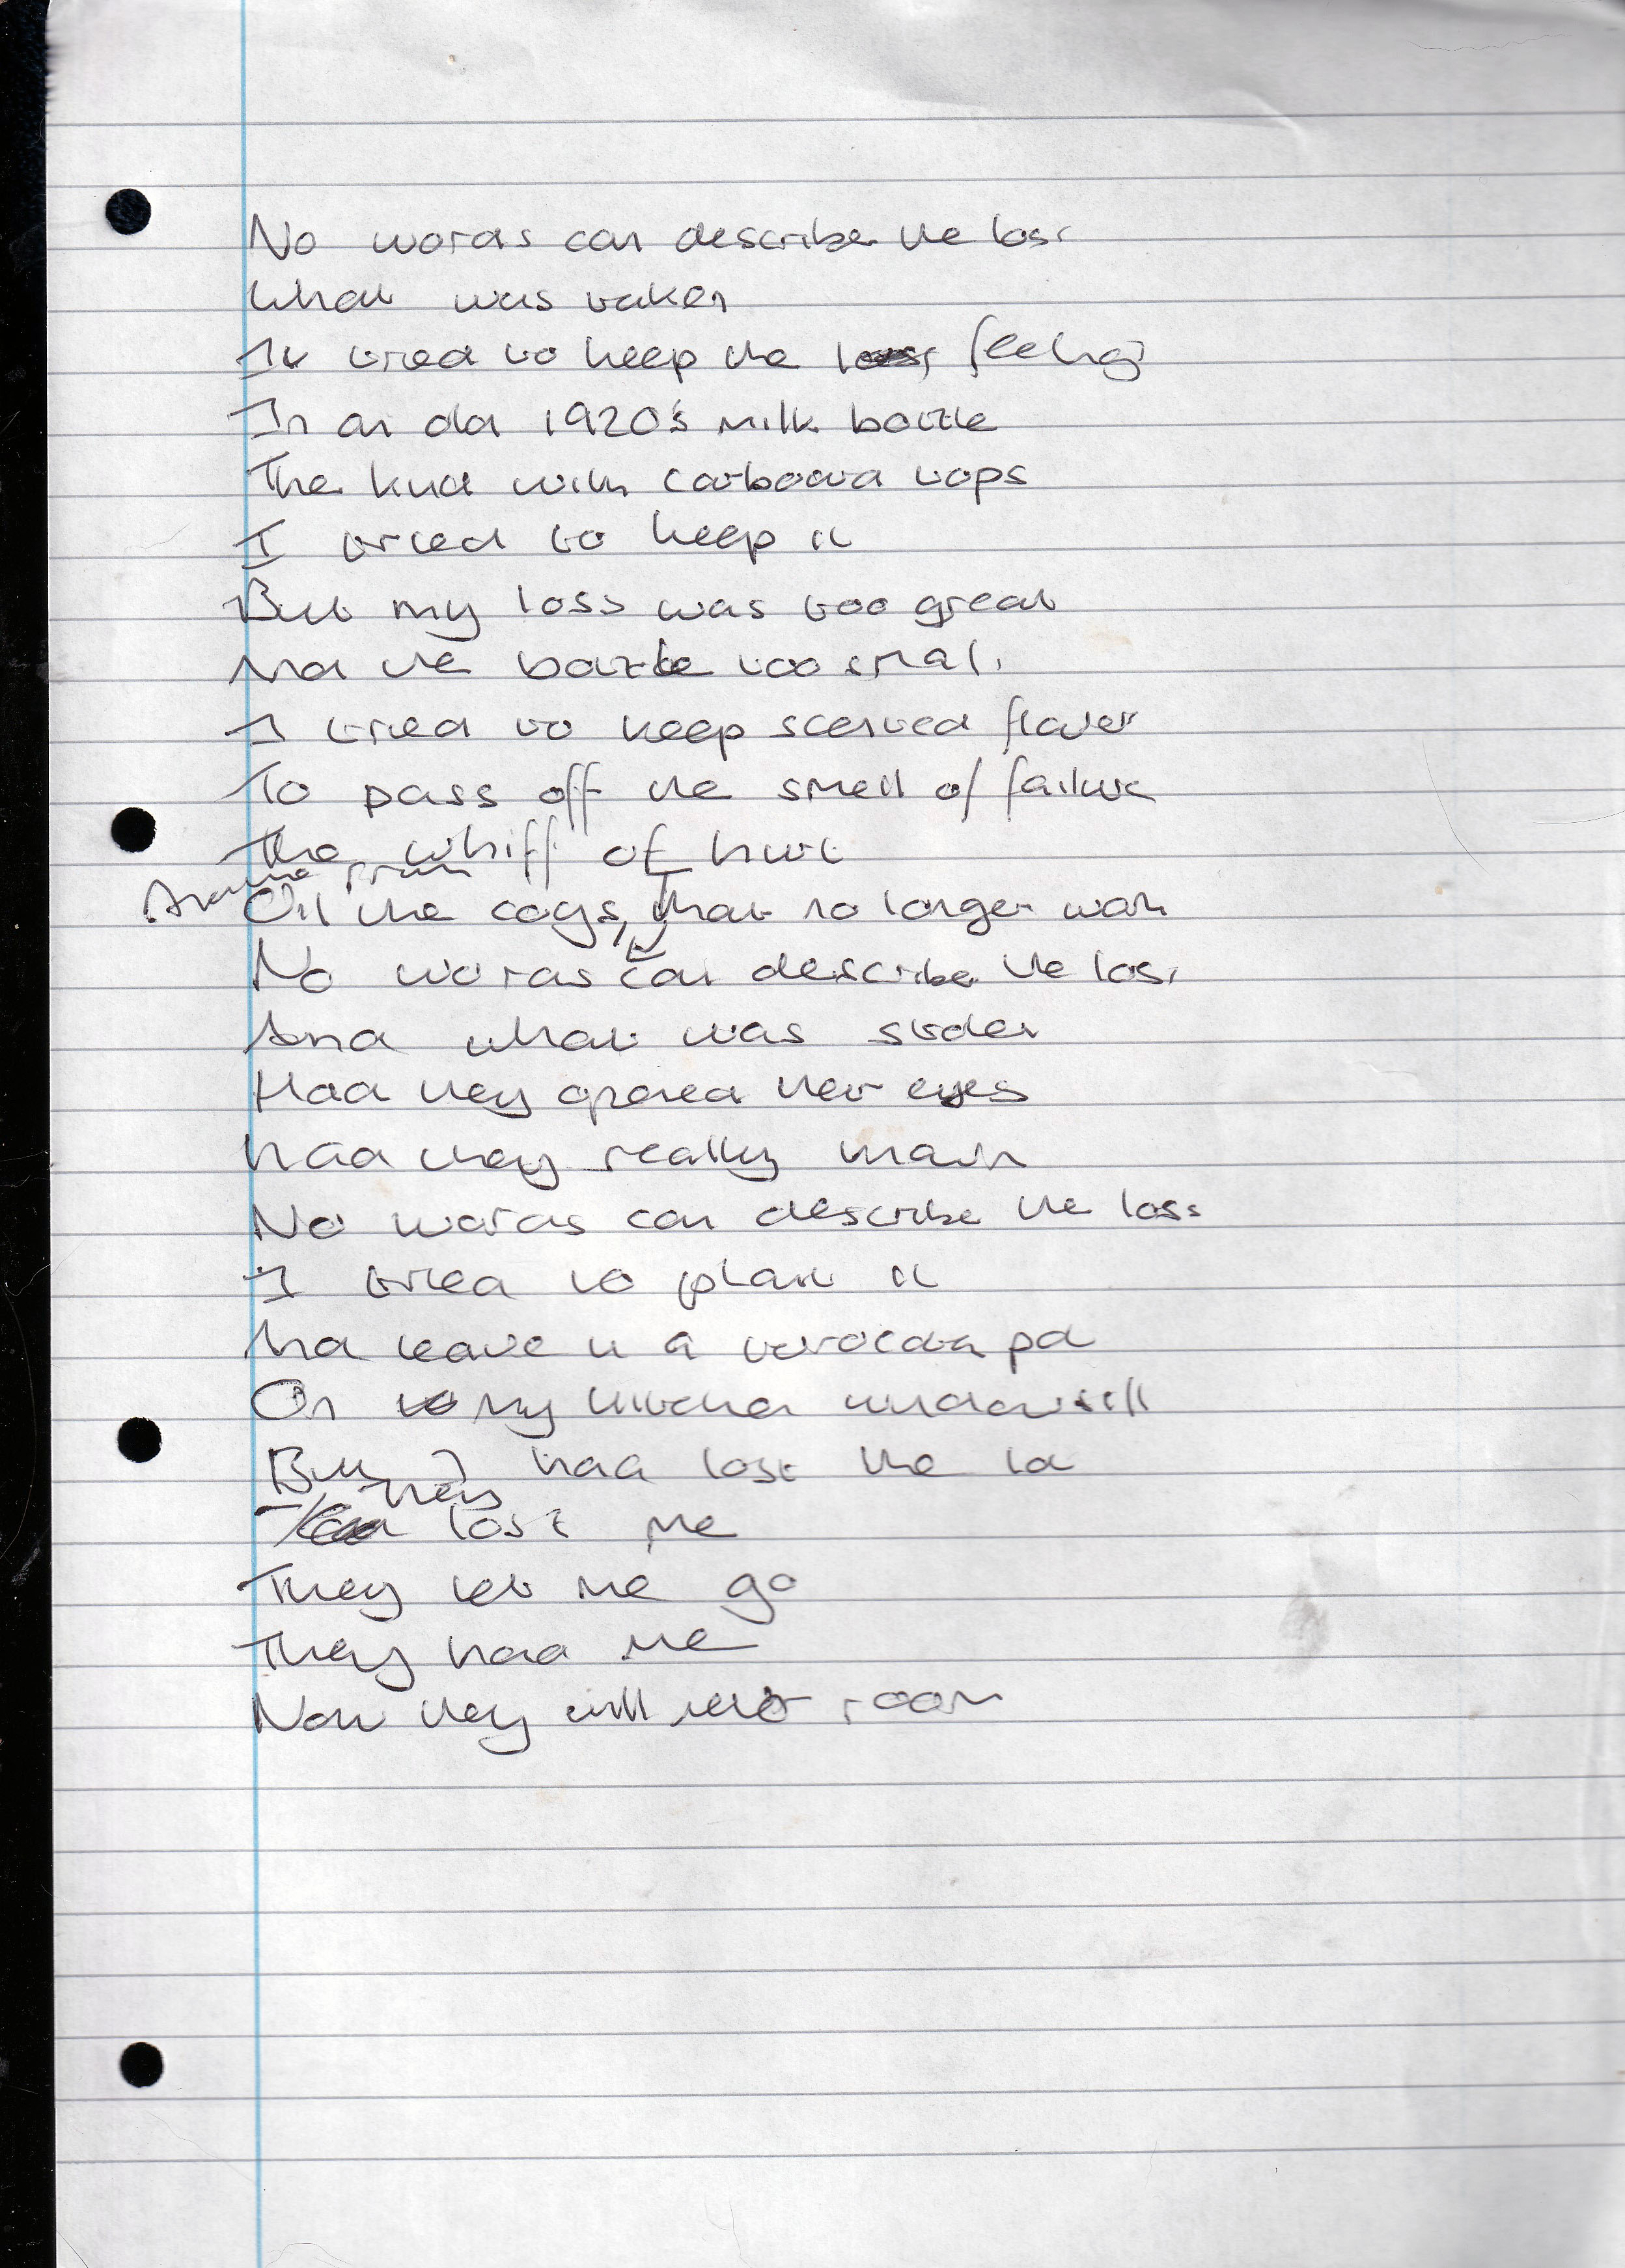 No words can describe the loss
What was taken
I tried to keep the loss feeling
In an old 1920's milk bottle
The kind with carboard tops
I tried to keep it
But my loss was too great
And the bottle too small.
I tried to keep scented flower
To pass off the smell of failure
The whiff of hurt
from
Oil the cogs, that no longer work
No words can describe the loss
And what was stolen
Had they opened their eyes
had they really
No words can describe the loss
I tried to plant it
And leave it a terracotta pot
On to my kitchen windowsill
But I had lost the lot
They
lost me
They let me go
They had me
Now they will rent room